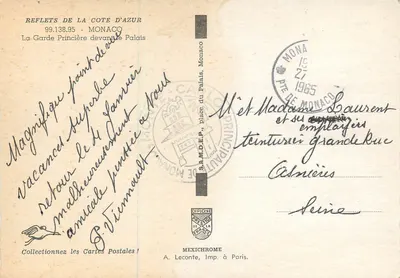 REFLETS DE LA COTE D'AZUR
99.138.95 - MONACO
La Garde Princière devant le Palais
Magnifique point de vue
vacances superbe
retour le 4 Janvier
malheureusement
amicale pensée à vous
P. Viennault
Collectionnez les Cartes Postales !
S.E.M.D.E.P., place du Palais, Monaco
PRINCIPAUTÉ DE MONACO
MEXICHROME
A. Leconte, Imp. à Paris.
MONA
27
1965
PTE DE MONACO
Mr et Madame Laurent
et ses employés
teinturier Grande Rue
Asnières
Seine